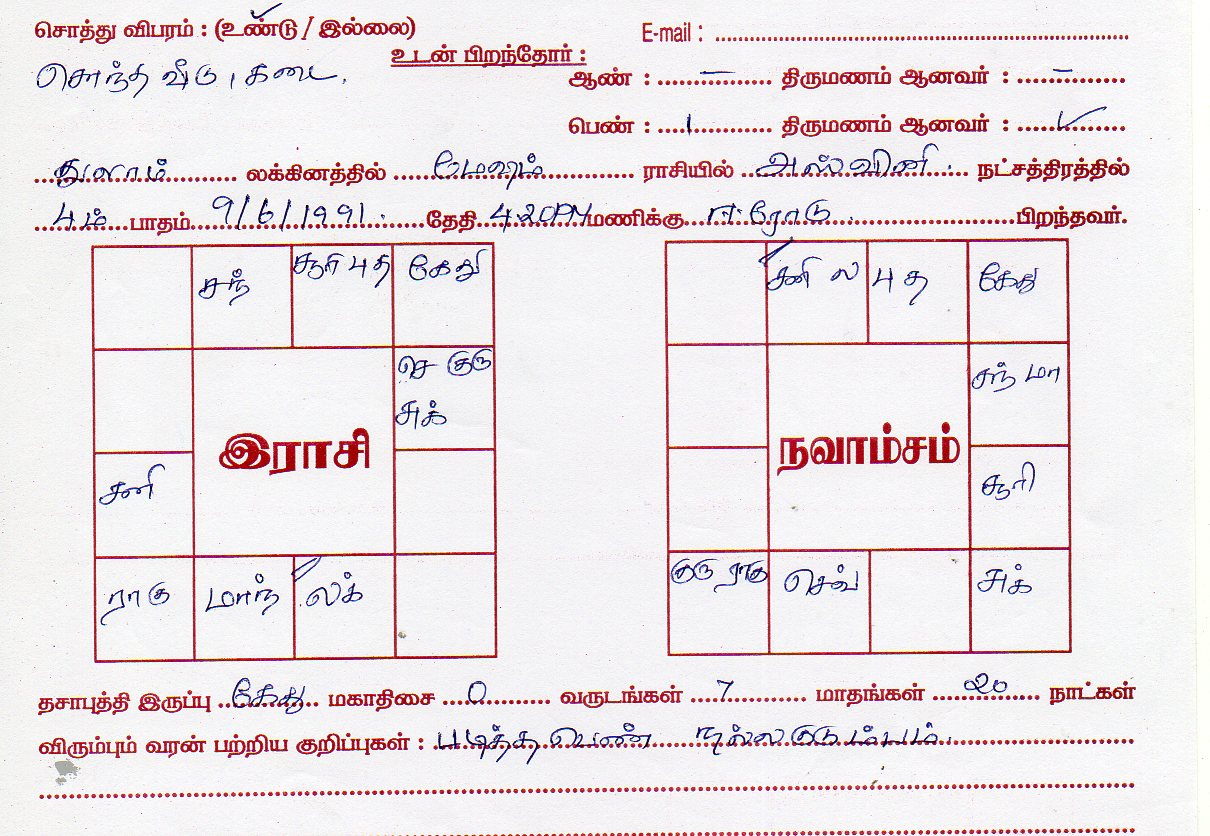 சொத்து விபரம் : (உண்டு / இல்லை)
E-mail :
சொந்த வீடு, கடை,
உடன் பிறந்தோர் :
ஆண் : — திருமணம் ஆனவர் : —
பெண் : 1 திருமணம் ஆனவர் : ✓
துலாம் லக்கினத்தில் மேஷம் ராசியில் அஸ்வினி நட்சத்திரத்தில்
4ம் பாதம் 9/6/1991. தேதி 4.20PM மணிக்கு ஈரோடு பிறந்தவர்.
சந்
சூரி புத
கேது
செ குரு
சுக்
இராசி
சனி
ராகு
மாந்
லக்
சனி ல
புத
கேது
சந் மா
நவாம்சம்
சூரி
குரு ராகு
செவ்
சுக்
தசாபுத்தி இருப்பு கேது மகாதிசை 0 வருடங்கள் 7 மாதங்கள் 20 நாட்கள்
விரும்பும் வரன் பற்றிய குறிப்புகள் : படித்த பெண் நல்ல குடும்பம்.